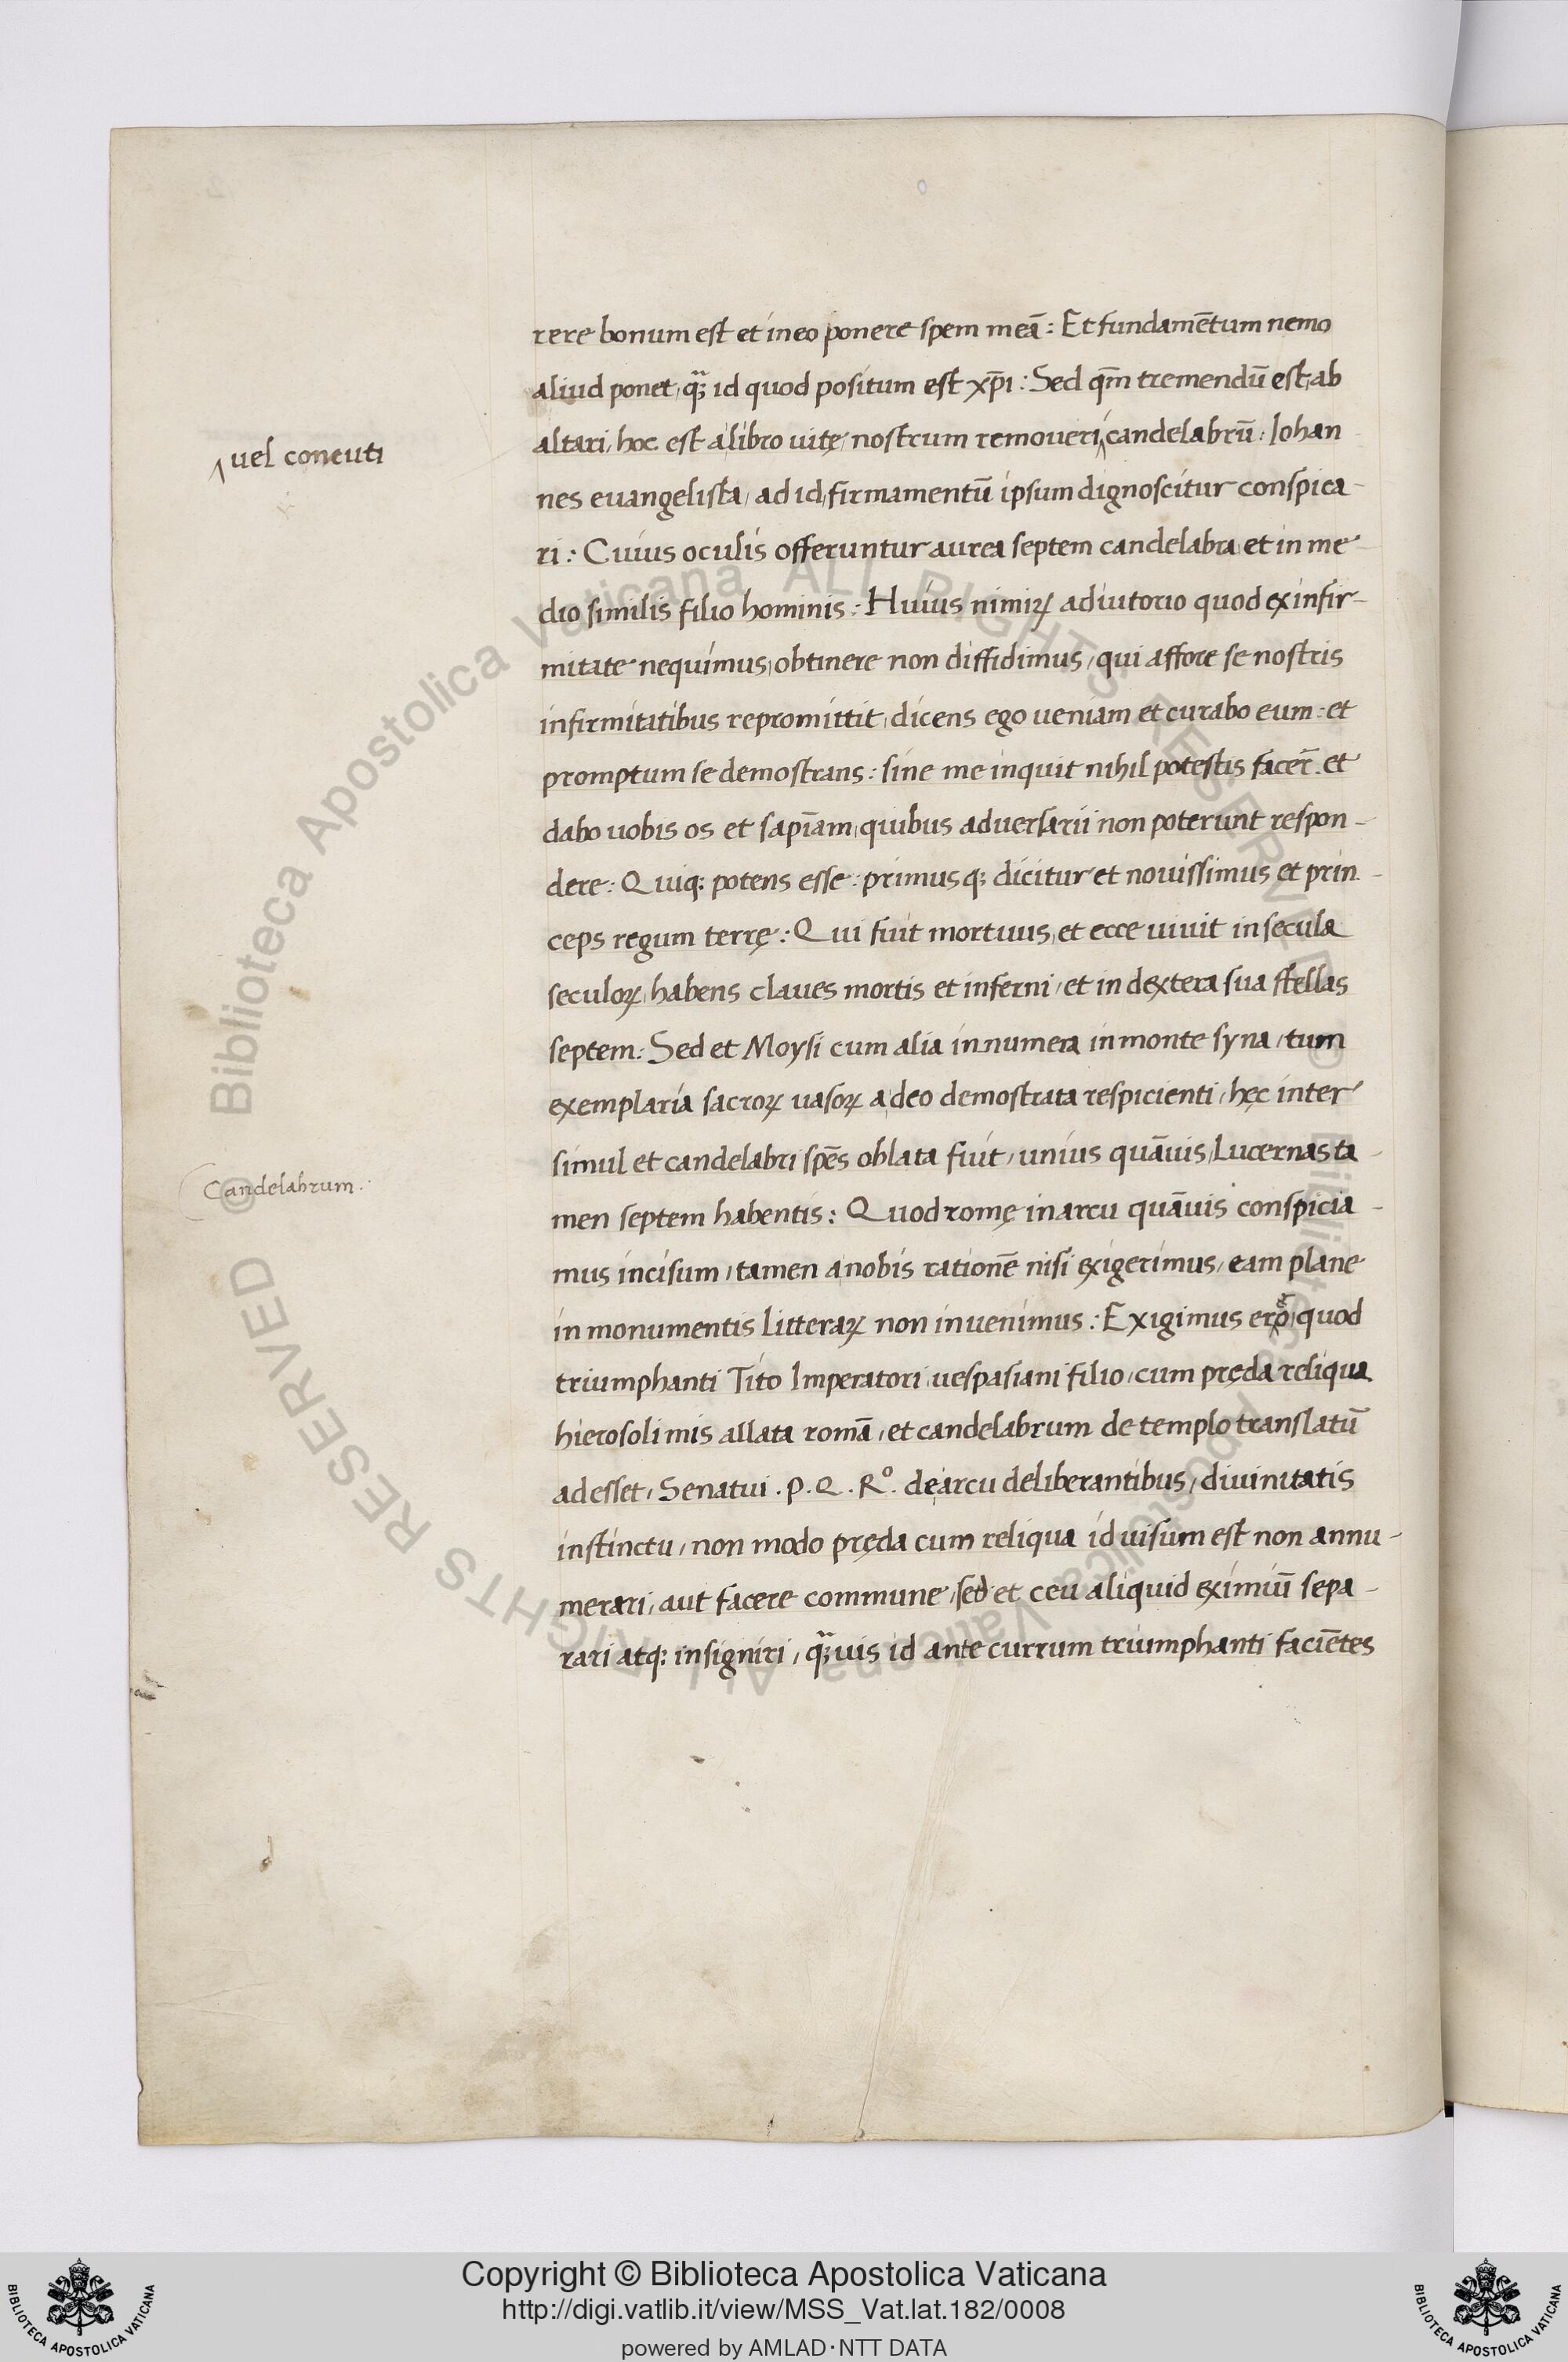 rere bonum est et in eo ponere spem meā: Et fundamētum nemo
aliud ponet, qꝫ̃ id quod positum est xp̄i: Sed qm̄ tremendū est, ab
altari, hoc est a libro uitę, nostrum remoueri ‸ candelabrū: Iohan
‸ uel concuti
nes euangelista, ad id, firmamentū ipsum dignoscitur conspica-
ri: Cuius oculis offeruntur aurea septem candelabra, et in me-
dio similis filio hominis: Huius nimiꝝ adiutorio quod ex infir-
mitate nequimus, obtinere non diffidimus, qui affore se nostris
infirmitatibus repromittit, dicens ego ueniam et curabo eum: et
promptum se demostrans: sine me inquit nihil potestis facer̄. et
dabo uobis os et sapīam, quibus aduersarii non poterunt respon-
dere: Quiqꝫ potens esse: primusqꝫ dicitur et nouissimus et prin-
ceps regum terrę: Qui fuit mortuus, et ecce uiuit in secula
seculoꝝ, habens claues mortis et inferni, et in dextera sua stellas
septem: Sed et Moysi cum alia innumera in monte syna, tum
exemplaria sacroꝝ uasoꝝ a deo demostrata respicienti, hęc inter
simul et candelabri spēs oblata fuit, unius quāuis, Lucernas ta-
Candelabrum.
men septem habentis: Quod romę in arcu quāuis conspicia-
mus incisum, tamen a nobis rationē nisi exigerimus, eam plane
in monumentis litteraꝝ non inuenimus: Exigimus ergo, quod
triumphanti Tito Imperatori, uespasiani filio, cum pręda reliqua
hierosolimis allata romā, et candelabrum de templo translatū
adesset, Senatui. P. Q. Rº. de arcu deliberantibus, diuinitatis
instinctu, non modo pręda cum reliqua id uisum est non annu-
merari, aut facere commune, sed et ceu aliquid eximiū sepa-
rari atqꝫ insigniri, qꝫ̃uis id ante currum triumphanti faciētes
© Biblioteca Apostolica Vaticana ALL RIGHTS RESERVED
© Biblioteca Apostolica Vaticana ALL RIGHTS RESERVED
Copyright © Biblioteca Apostolica Vaticana
http://digi.vatlib.it/view/MSS_Vat.lat.182/0008
powered by AMLAD·NTT DATA
BIBLIOTECA APOSTOLICA VATICANA
BIBLIOTECA APOSTOLICA VATICANA